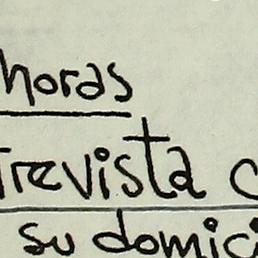 horas
trevista c
su domici